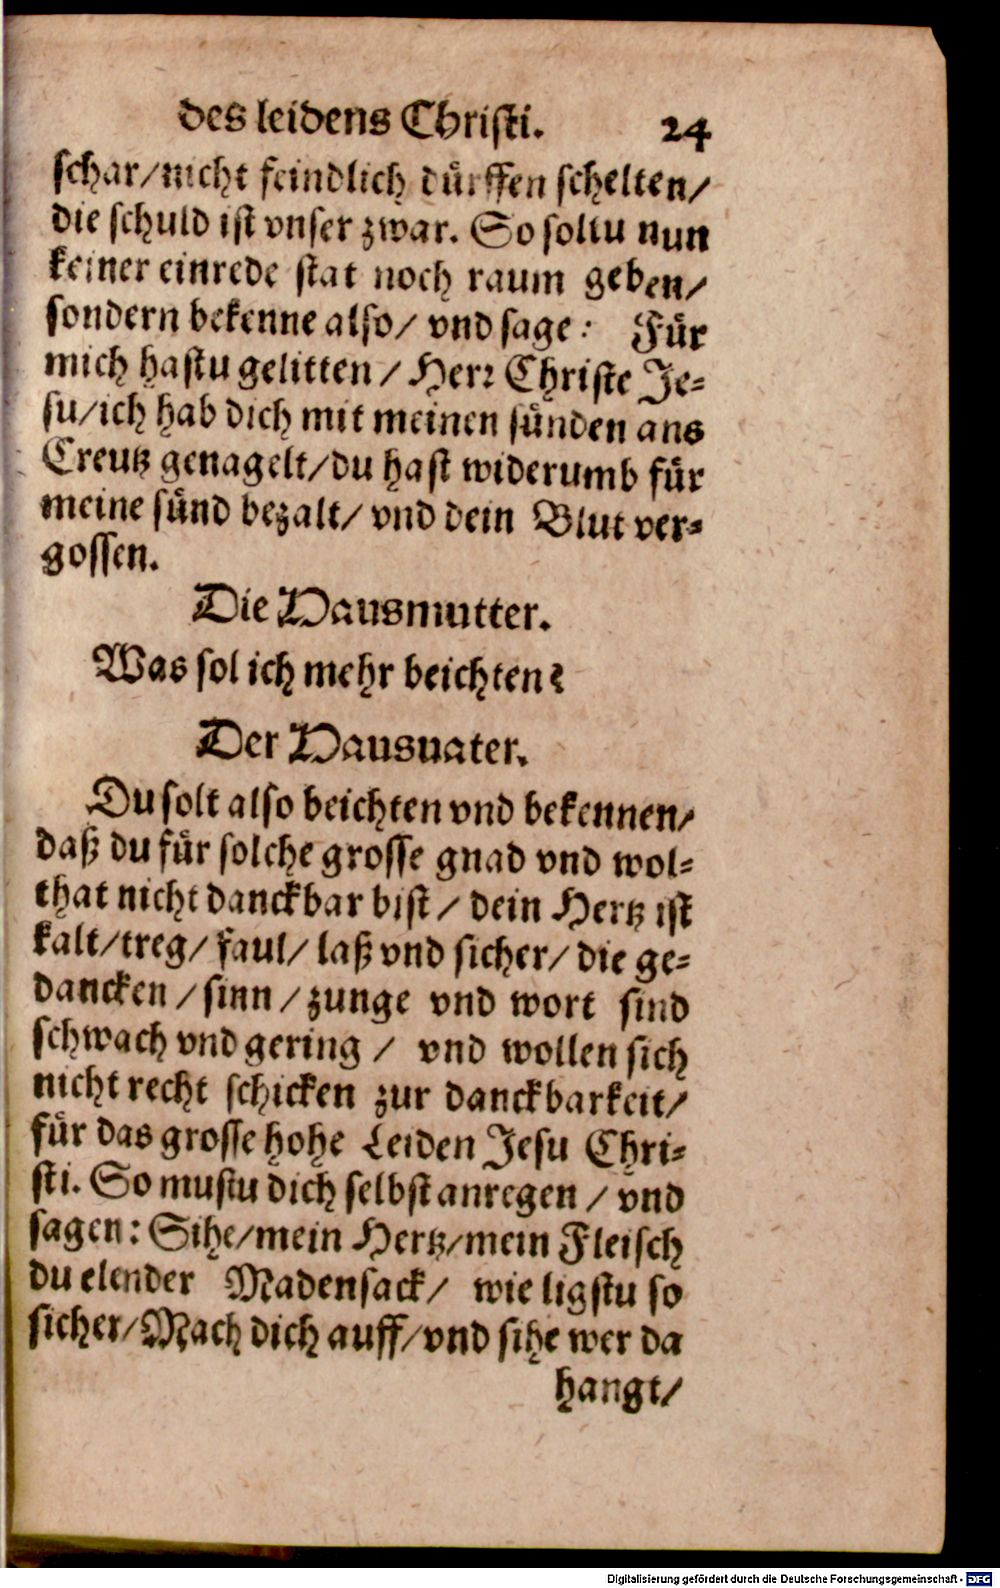 des leidens Christi. 24
schar/nicht feindlich dürffen schelten/
die schuld ist vnser zwar. So soltu nun
keiner einrede stat noch raum geben/
sondern bekenne also/ vnd sage: Für
mich hastu gelitten/ Herr Christe Je⸗
su/ich hab dich mit meinen sünden ans
Creutz genagelt/du hast widerumb für
meine sünd bezalt/ vnd dein Blut ver⸗
gossen.
Die Hausmutter.
Was sol ich mehr beichten?
Der Hausuater.
Du solt also beichten vnd bekennen/
daß du für solche grosse gnad vnd wol⸗
that nicht danckbar bist/ dein Hertz ist
kalt/treg/ faul/ laß vnd sicher/ die ge⸗
dancken/sinn/zunge vnd wort sind
schwach vnd gering/ vnd wollen sich
nicht recht schicken zur danckbarkeit/
für das grosse hohe Leiden Jesu Chri⸗
sti. So mustu dich selbst anregen/ vnd
sagen: Sihe/mein Hertz/mein Fleisch
du elender Madensack/ wie ligstu so
sicher/Mach dich auff/vnd sihe wer da
hangt/
Digitalisierung gefördert durch die Deutsche Forschungsgemeinschaft - DFG